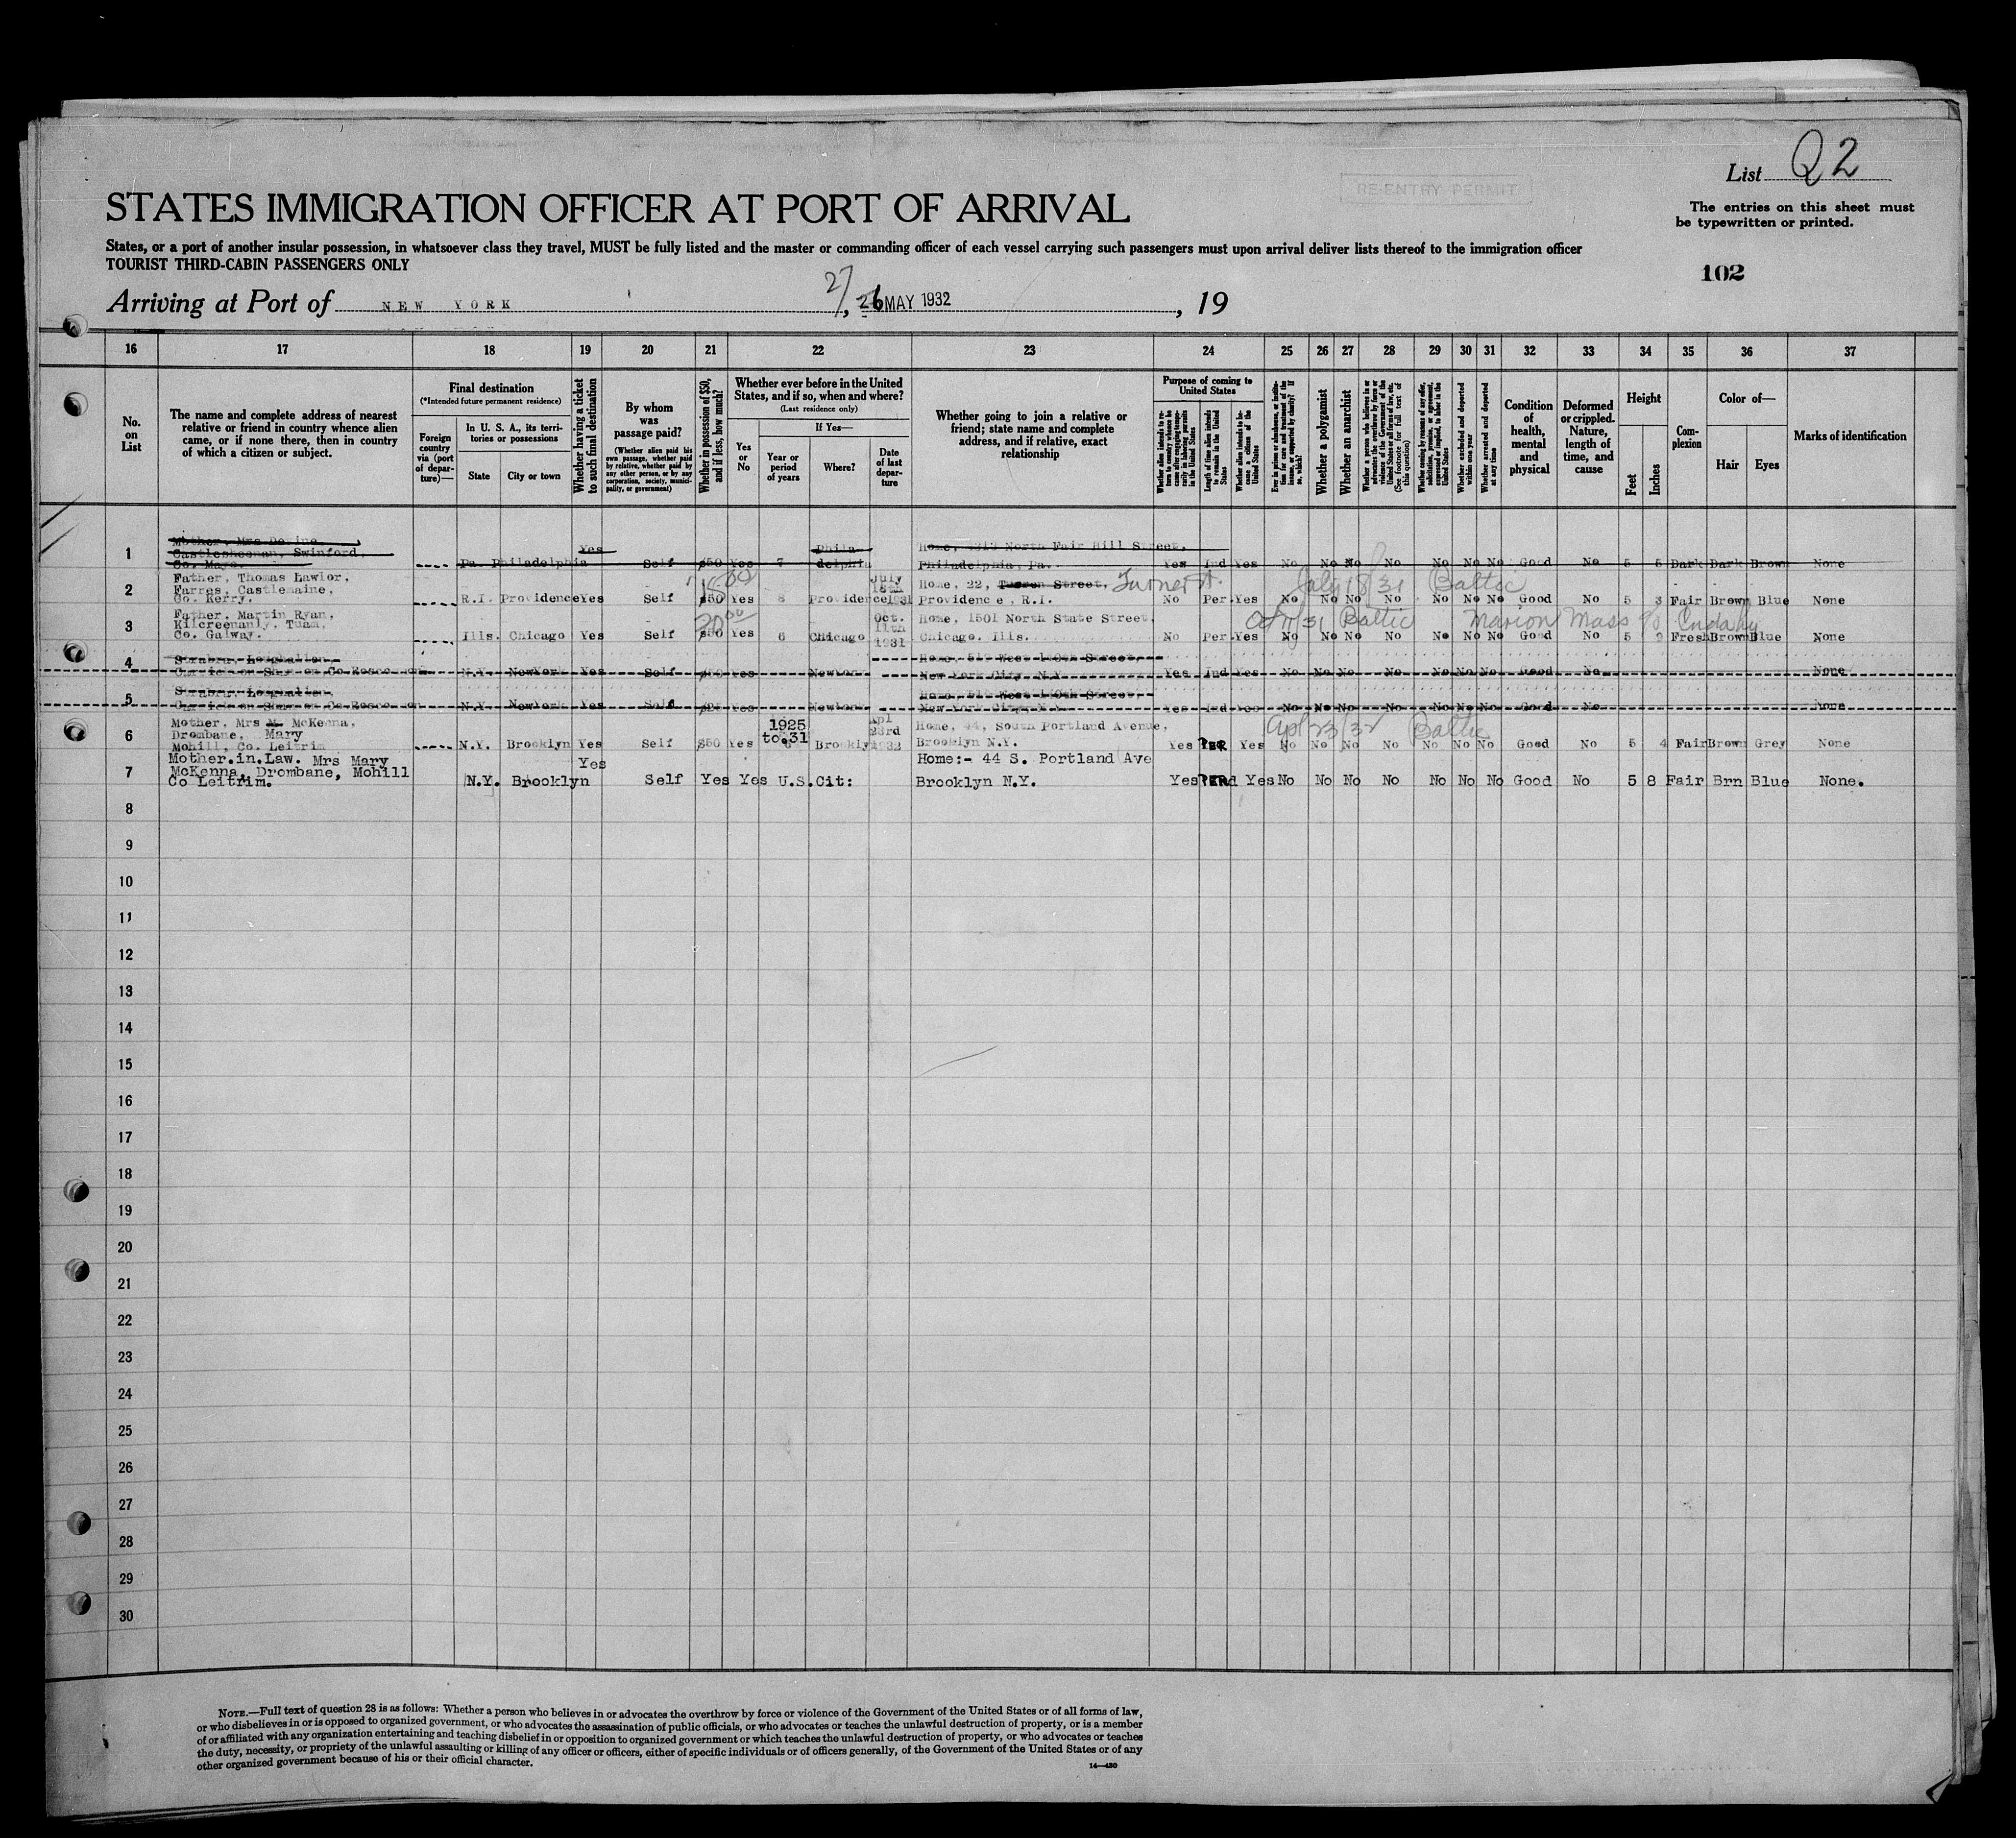 List Q2
RE-ENTRY PERMIT
STATES IMMIGRATION OFFICER AT PORT OF ARRIVAL
The entries on this sheet must
be typewritten or printed.
States, or a port of another insular possession, in whatsoever class they travel, MUST be fully listed and the master or commanding officer of each vessel carrying such passengers must upon arrival deliver lists thereof to the immigration officer
TOURIST THIRD-CABIN PASSENGERS ONLY
102
Arriving at Port of NEW YORK 27, 26 MAY 1932, 19
16 17 18 19 20 21 22 23 24 25 26 27 28 29 30 31 32 33 34 35 36 37
No. on List
The name and complete address of nearest relative or friend in country whence alien came, or if none there, then in country of which a citizen or subject.
Final destination
(*Intended future permanent residence)
Foreign country via (port of departure)—
In U. S. A., its territories or possessions
State
City or town
Whether having a ticket to such final destination
By whom was passage paid?
(Whether alien paid his own passage, whether paid by relative, whether paid by any other person, or by any corporation, society, municipality, or government)
Whether in possession of $50, and if less, how much?
Whether ever before in the United States, and if so, when and where?
(Last residence only)
Yes or No
If Yes—
Year or period of years
Where?
Date of last departure
Whether going to join a relative or friend; state name and complete address, and if relative, exact relationship
Purpose of coming to United States
Length of time alien intends to remain in the United States
Whether alien intends to become a citizen of the United States
Whether a polygamist
Whether an anarchist
(See footnote for full text of this question)
Whether excluded and deported within one year
Whether arrested and deported at any time
Condition of health, mental and physical
Deformed or crippled. Nature, length of time, and cause
Height
Feet
Inches
Complexion
Color of—
Hair
Eyes
Marks of identification
Yes Phila Home, 4313 North Fair Hill Street,
Mother, Mrs Devine,
Castlesheenan, Swinford,
1 Co. Mayo. Pa. Philadelphia Self $50 Yes 7 delphia Philadelphia, Pa. Yes Ind Yes No No No No No No No Good No 5 5 Dark Dark Brown None
Father, Thomas Lawlor, July
Farres, Castlemaine, 18th Home, 22, Turner St. July 18/31 Baltic
2 Co. Kerry. R.I. Providence Yes Self $50 Yes 8 Providence 1931 Providence, R.I. No Per Yes No No No No No No No Good No 5 3 Fair Brown Blue None
Father, Martin Ryan, Oct. Home, 1501 North State Street, Oct 11/31 Baltic Marion Mass
Kilcreenanly, Tuam, 11th
3 Co. Galway. Ills. Chicago Yes Self $50 Yes 6 Chicago 1931 Chicago. Ills. No Per Yes No No No No No No No Good No 5 2 Fresh Brown Blue None
4 N.Y. NewYork Yes Self $50 Yes New York City, N.Y. Yes Ind Yes No No No No No No No Good No None
5 N.Y. NewYork Yes Self Yes New York City, N.Y. Yes Ind Yes No No No No No No No Good No None
Mother, Mrs M. McKenna, 1925 Apl Home, 44, South Portland Avenue, Apl 23/32 Baltic
Drombane, Mary to 31 23rd
6 Mohill, Co. Leitrim N.Y. Brooklyn Yes Self $50 Yes 6 Brooklyn 1932 Brooklyn N.Y. Yes PER Yes No No No No No No No Good No 5 4 Fair Brown Grey None
Mother.in.Law. Mrs Mary Yes Home:- 44 S. Portland Ave
McKenna, Drombane, Mohill
7 Co Leitrim. N.Y. Brooklyn Self Yes Yes U.S.Cit: Brooklyn N.Y. Yes PER Yes No No No No No No No Good No 5 8 Fair Brn Blue None.
8
9
10
11
12
13
14
15
16
17
18
19
20
21
22
23
24
25
26
27
28
29
30
NOTE.—Full text of question 28 is as follows: Whether a person who believes in or advocates the overthrow by force or violence of the Government of the United States or of all forms of law,
or who disbelieves in or is opposed to organized government, or who advocates the assassination of public officials, or who advocates or teaches the unlawful destruction of property, or is a member
of or affiliated with any organization entertaining and teaching disbelief in or opposition to organized government or which teaches the unlawful destruction of property, or who advocates or teaches
the duty, necessity, or propriety of the unlawful assaulting or killing of any officer or officers, either of specific individuals or of officers generally, of the Government of the United States or of any
other organized government because of his or their official character.
14—430